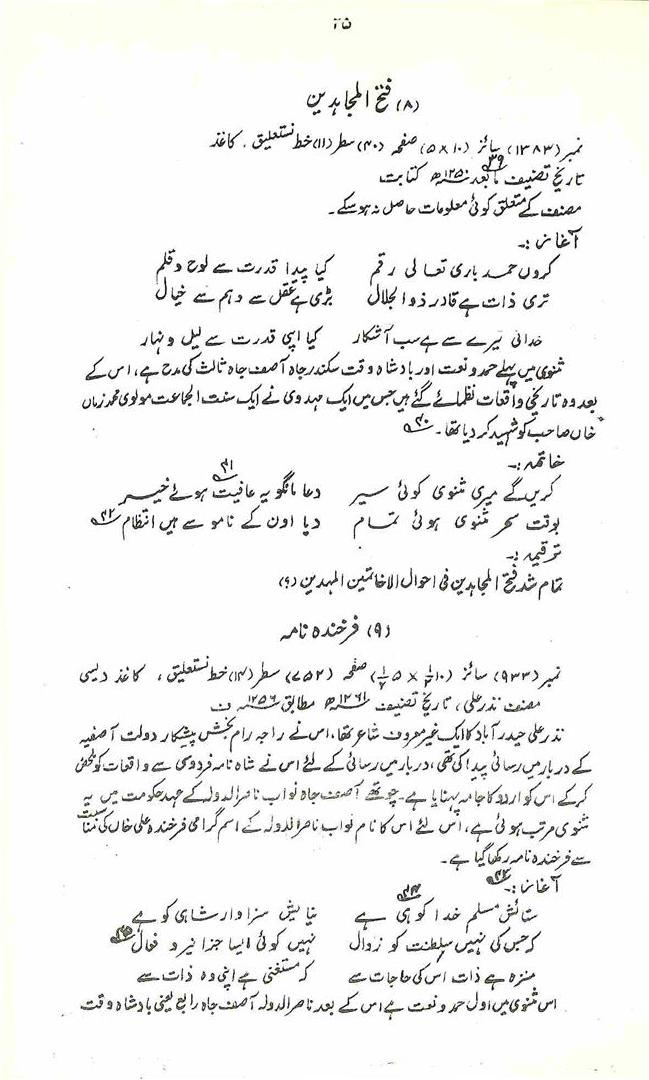 ۲۵
(۸) فتح المجاہدین
نمبر (۱۳۸۳) سائز (۱۰ × ۵) صفحہ (۴۰) سطر (۱۱) خط نستعلیق ۔ کاغذ
تاریخ تصنیف مابعد ۱۲۵۰ھ ۳۹ کتابت
مصنف کے متعلق کوئی معلومات حاصل نہ ہوسکے۔
آغاز :۔
کروں حمد باری تعالی رقم کیا پیدا قدرت سے لوح و قلم
تری ذات ہے قادر ذوالجلال بڑی ہے عقل سے وہم سے خیال
خدائی تیرے سے ہے سب آشکار کیا اپنی قدرت سے لیل و نہار
مثنوی میں پہلے حمد و نعت اور بادشاہ وقت سکندر جاہ آصف جاہ ثالث کی مدح ہے، اس کے
بعد وہ تاریخی واقعات نظمائے گئے ہیں جس میں ایک مہدوی نے ایک سنت الجماعت مولوی محمد زماں
خاں صاحب کو شہید کر دیا تھا۔ ۴۰
خاتمہ :۔
کریں گے میری مثنوی کوئی سیر دعا مانگو یہ عافیت ہوئے خیر ۴۱
بوقت سحر مثنوی ہوئی تمام دیا اون کے نامو سے ہیں انتظام ۴۲
ترقیمہ :۔
تمام شد فتح المجاہدین فی احوال الاخاتمین المہدین (؟)
(۹) فرخندہ نامہ
نمبر (۹۳۳) سائز (۱۰ ۱/۲ × ۵ ۱/۲) صفحہ (۷۵۲) سطر (۱۴) خط نستعلیق ، کاغذ دیسی
مصنف نذر علی ، تاریخ تصنیف ۱۲۶۱ھ مطابق ۱۲۵۶ ف
نذر علی حیدرآباد کا ایک غیر معروف شاعر تھا، اس نے راجہ رام بخش پیشکار دولت آصفیہ
کے دربار میں رسائی پیدا کی تھی، دربار میں رسائی کے لئے اس نے شاہ نامہ فردوسی سے واقعات کو ملخص
کرکے اس کو اردو کا جامہ پہنایا ہے۔ چوتھے آصف جاہ نواب ناصر الدولہ کے عہد حکومت میں یہ
مثنوی مرتب ہوئی ہے، اس لئے اس کا نام نواب ناصر الدولہ کے اسم گرامی فرخندہ علی خاں کی مناسبت
سے فرخندہ نامہ رکھا گیا ہے۔
آغاز :۔
ستائش مسلم خدا کو ہی ہے نیایش سزاوار شاہی کو ہے
کہ جس کی نہیں سلطنت کو زوال نہیں کوئی ایسا جز ا نیرو فعال
منزہ ہے ذات اس کی حاجات سے کہ مستغنی ہے اپنی وہ ذات سے
اس مثنوی میں اول حمد و نعت ہے اس کے بعد ناصر الدولہ آصف جاہ رابع یعنی بادشاہ وقت